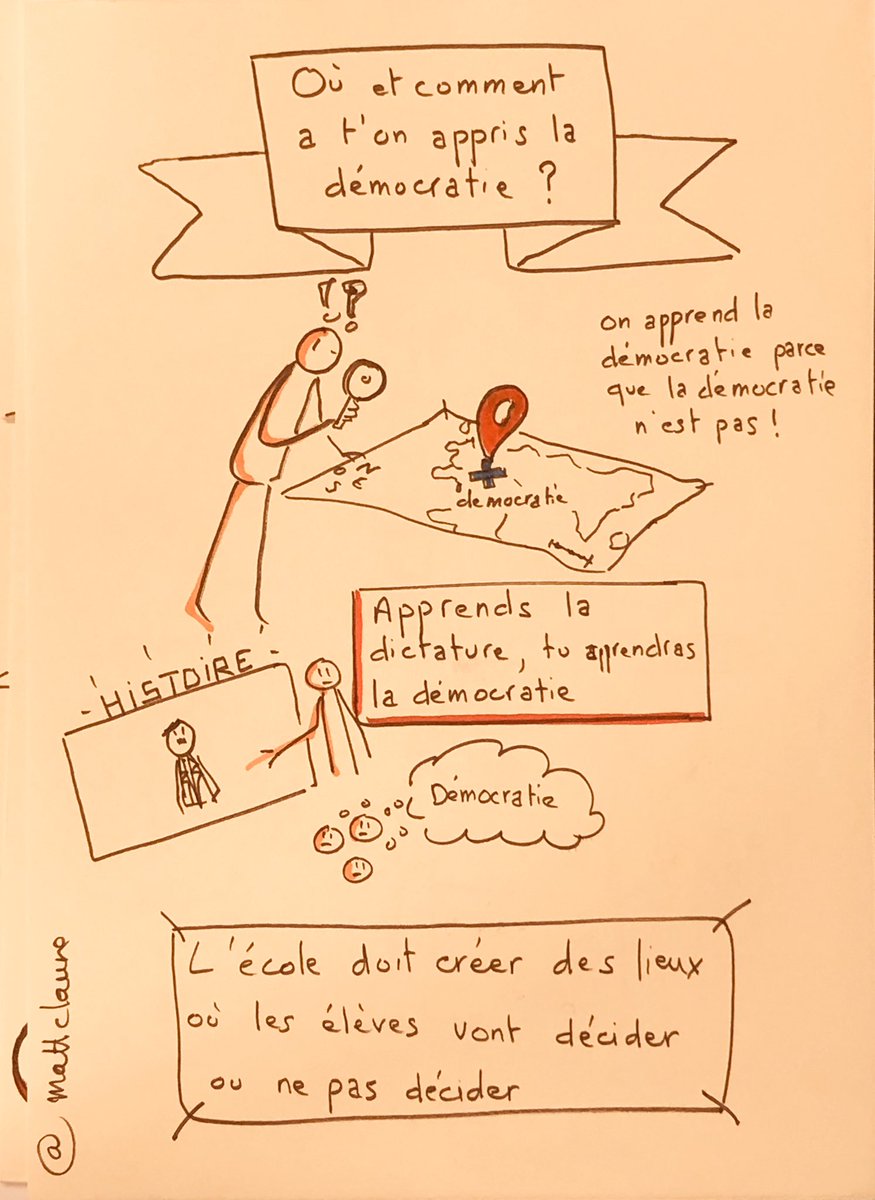 Où et comment
a t'on appris la
démocratie ?
!?
on apprend la
démocratie parce
que la démocratie
n'est pas !
O N
S E
démocratie
Apprends la
dictature, tu apprendras
la démocratie
- HISTOIRE -
Démocratie
L'école doit créer des lieux
où les élèves vont décider
ou ne pas décider
@mattclaure